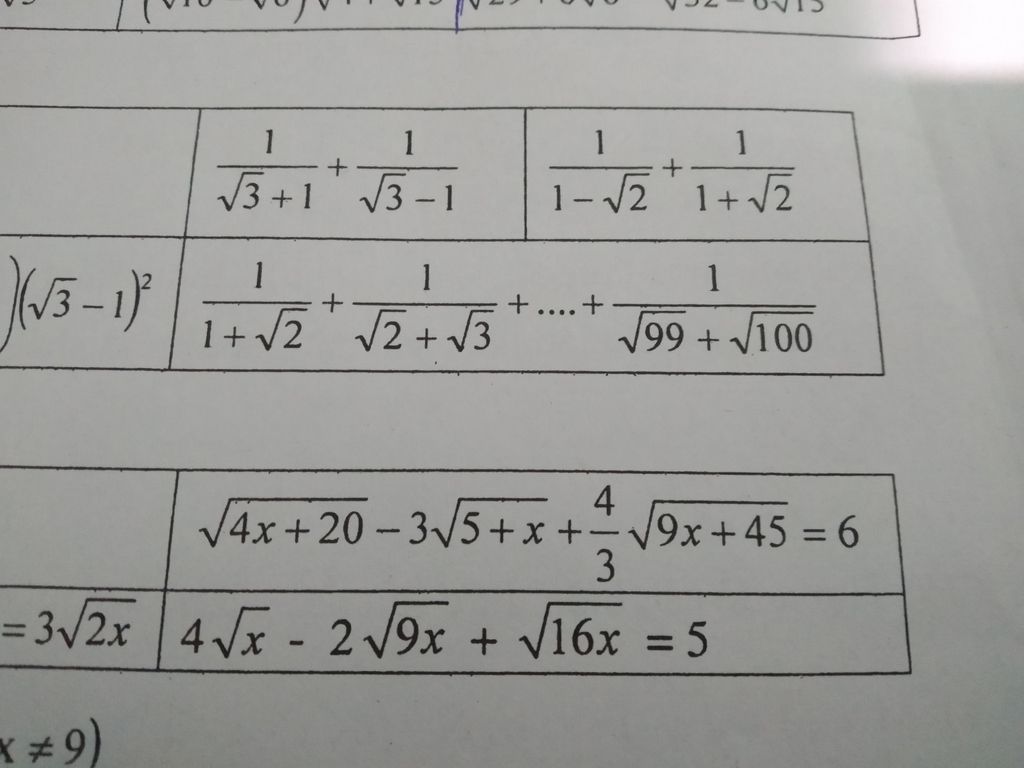 1/(√3 + 1) + 1/(√3 − 1)
1/(1 − √2) + 1/(1 + √2)
)(√3 − 1)²
1/(1 + √2) + 1/(√2 + √3) + .... + 1/(√99 + √100)
√(4x + 20) − 3√(5 + x) + 4/3 √(9x + 45) = 6
= 3√(2x)
4√x - 2√(9x) + √(16x) = 5
x ≠ 9)